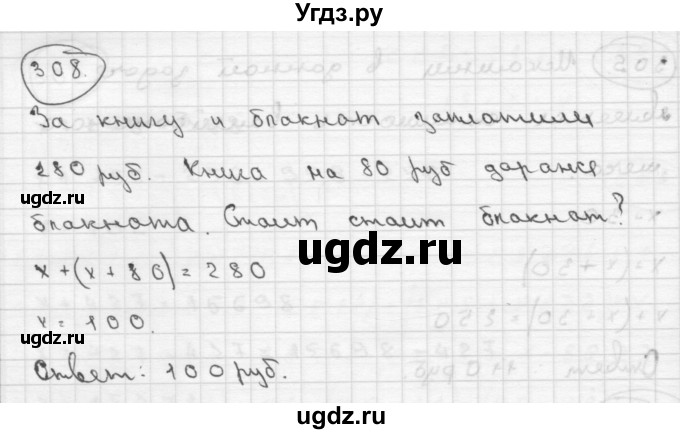 Угдз.ру
308.
За книгу и блакнат заплатили
280 руб. Книга на 80 руб дараже
блакната. Стоит стоит блакнат?
x+(x+80)=280
x=100.
Ответ: 100 руб.
ugdz.ru
ugdz.ru
ugdz.ru
ugdz.ru
ugdz.ru
ugdz.ru